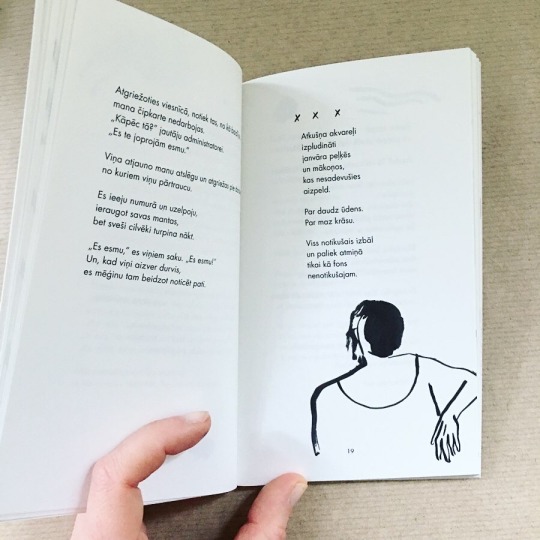 Atgriežoties viesnīcā, notiek tas, no kā
mana čipkarte nedarbojas.
„Kāpēc tā?” jautāju administratorei.
„Es te joprojām esmu.”
Viņa atjauno manu atslēgu un atgriežas pie
no kuriem viņu pārtraucu.
Es ieeju numurā un uzelpoju,
ieraugot savas mantas,
bet sveši cilvēki turpina nākt.
„Es esmu,” es viņiem saku. „Es esmu!”
Un, kad viņi aizver durvis,
es mēģinu tam beidzot noticēt pati.
x x x
Atkušņa akvareļi
izpludināti
janvāra peļķēs
un mākoņos,
kas nesadevušies
aizpeld.
Par daudz ūdens.
Par maz krāsu.
Viss notikušais izbāl
un paliek atmiņā
tikai kā fons
nenotikušajam.
19